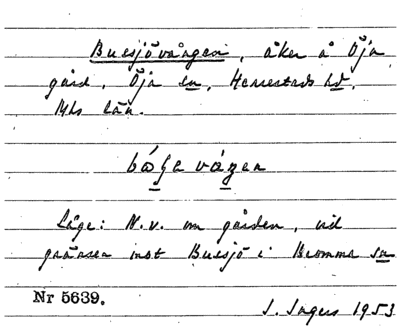 Bussjövången, åker å Öja
gård, Öja sn, Herrestads hd,
Mhs län.
Läge: N.v. om gården, vid
gränsen mot Bussjö i Bromma sn
Nr 5639.
J. Ingers 1953